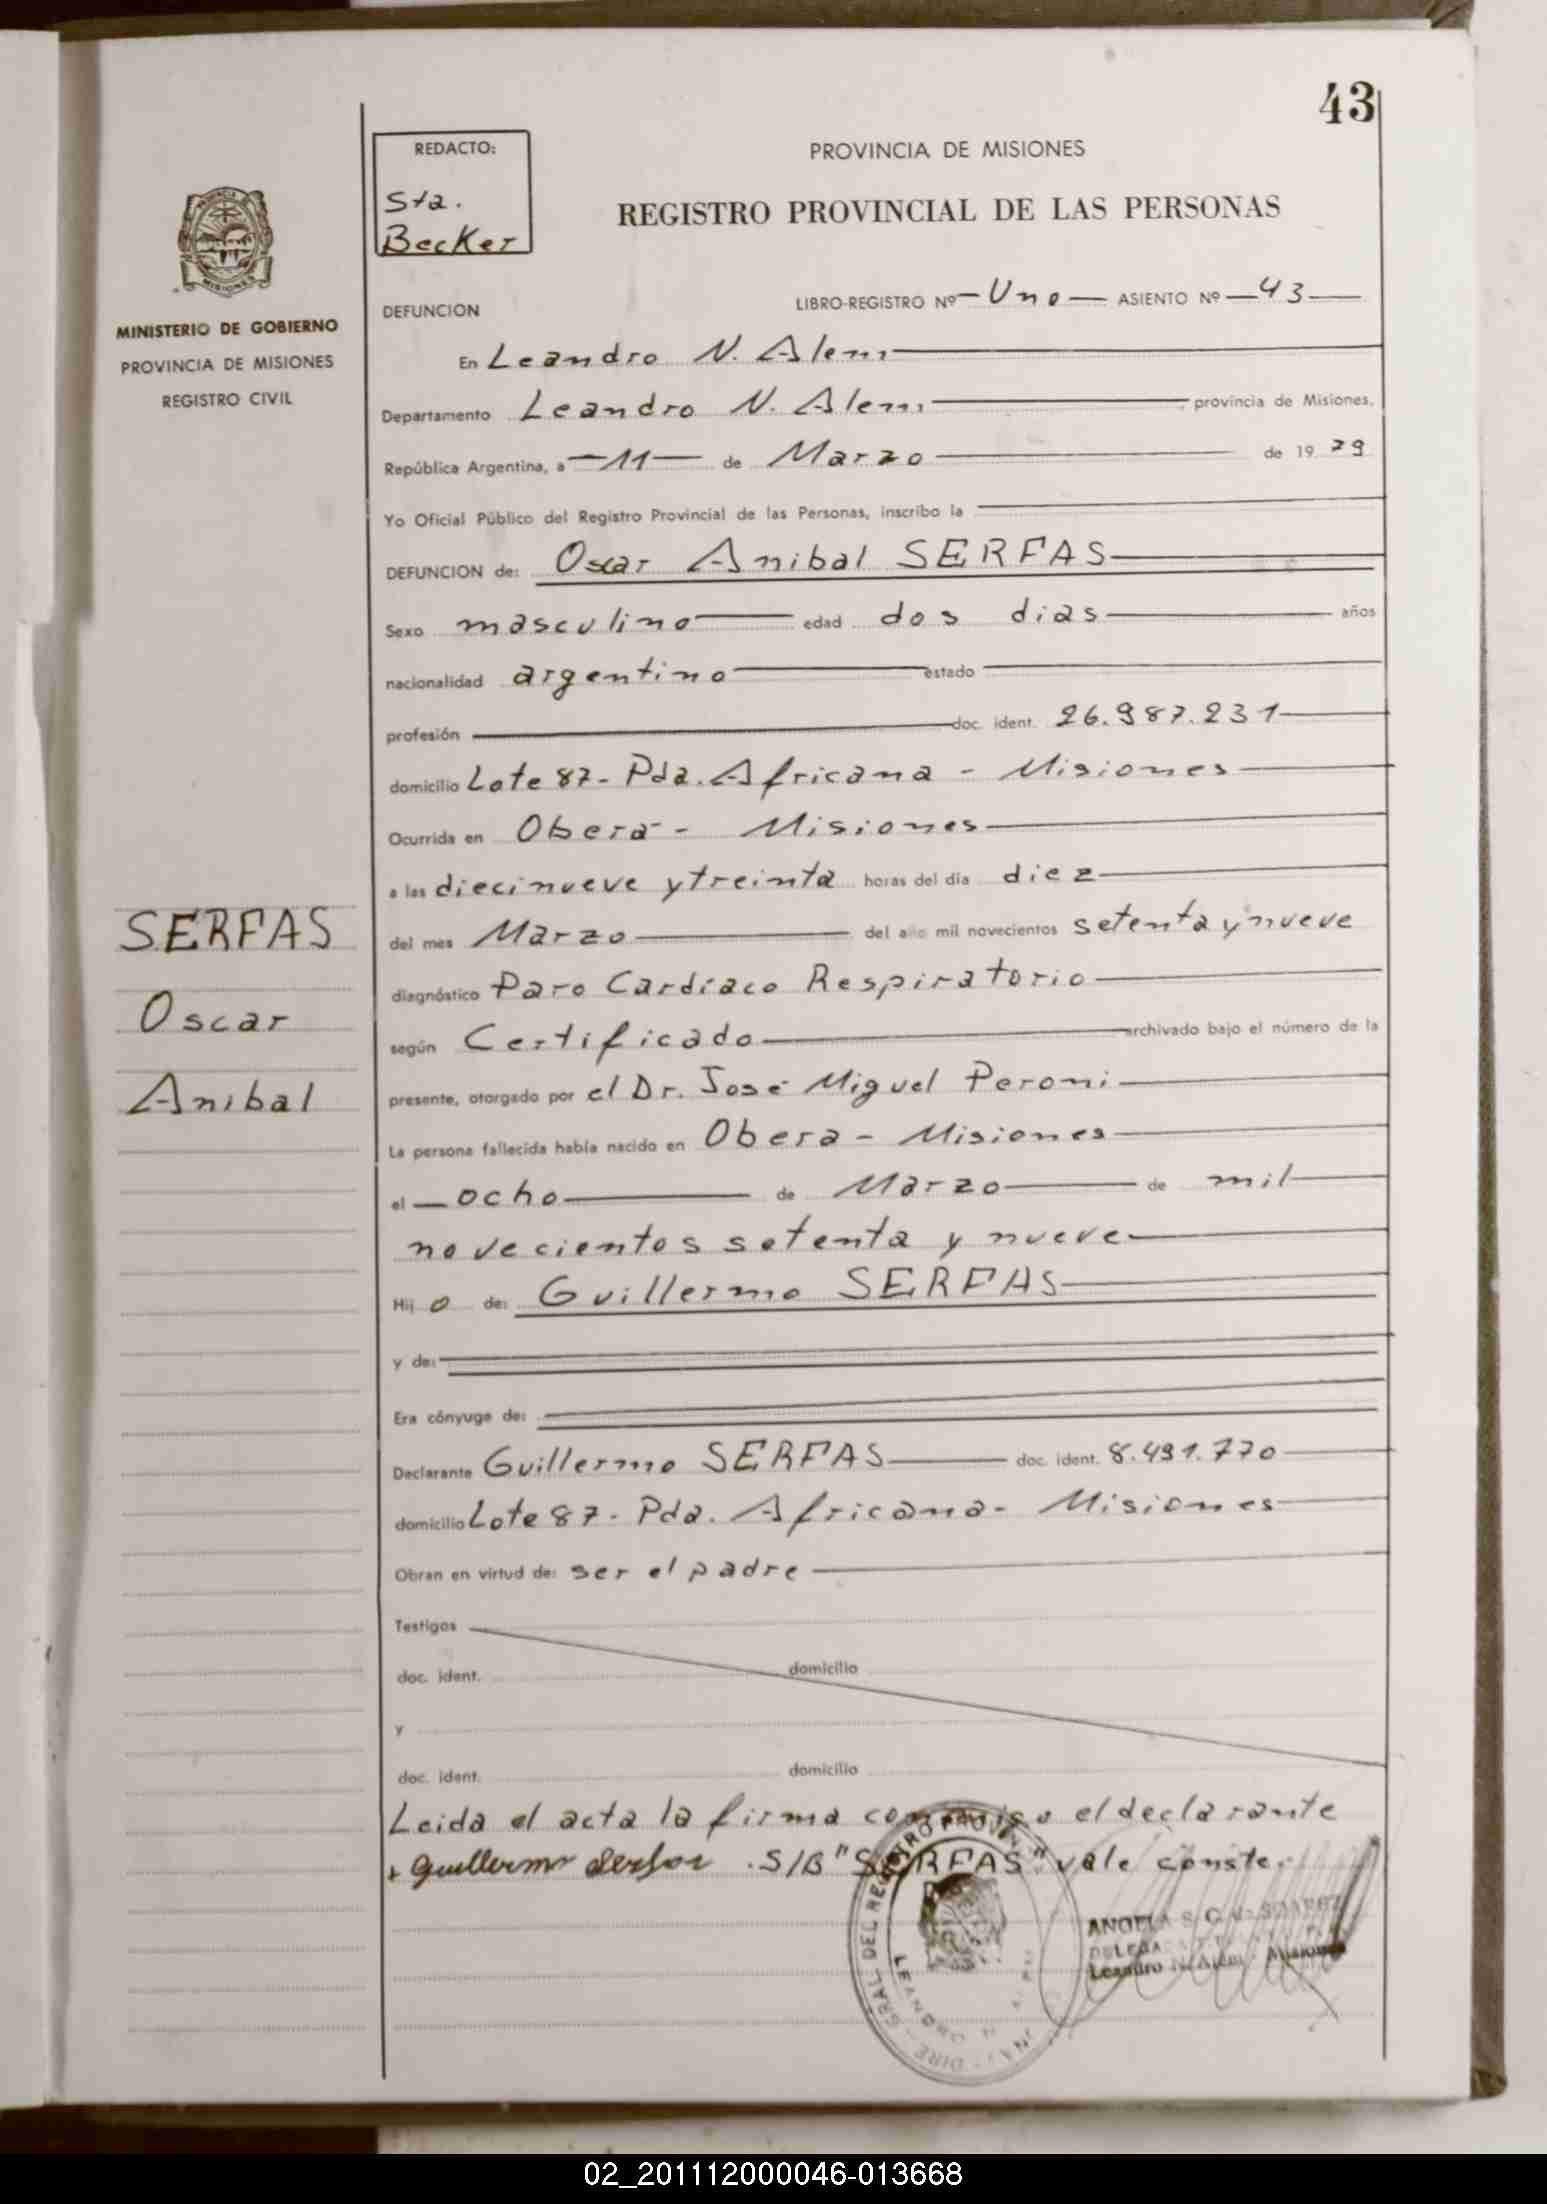 43
REDACTO:
Sta.
Becker
PROVINCIA DE MISIONES
REGISTRO PROVINCIAL DE LAS PERSONAS
MINISTERIO DE GOBIERNO
PROVINCIA DE MISIONES
REGISTRO CIVIL
DEFUNCION LIBRO-REGISTRO Nº Uno ASIENTO Nº 43
En Leandro N. Alem
Departamento Leandro N. Alem provincia de Misiones,
República Argentina, a 11 de Marzo de 19 79
Yo Oficial Público del Registro Provincial de las Personas, inscribo la
DEFUNCION de: Oscar Anibal SERFAS
Sexo masculino edad dos dias años
nacionalidad argentino estado
profesión doc. ident. 26.987.231
domicilio Lote 87- Pda. Africana - Misiones
Ocurrida en Oberá - Misiones
a las diecinueve y treinta horas del día diez
del mes Marzo del año mil novecientos setenta y nueve
diagnóstico Paro Cardíaco Respiratorio
según Certificado archivado bajo el número de la
presente, otorgado por el Dr. José Miguel Peroni
La persona fallecida había nacido en Obera - Misiones
el ocho de Marzo de mil
novecientos setenta y nueve
Hij o de: Guillermo SERFAS
y de:
Era cónyuge de:
Declarante Guillermo SERFAS doc. ident. 8.491.770
domicilio Lote 87- Pda. Africana - Misiones
Obran en virtud de: ser el padre
Testigos
doc. ident. domicilio
y
doc. ident. domicilio
Leida el acta la firma conmigo el declarante
Guillermo Serfas .S/B "SERFAS" vale conste.
SERFAS
Oscar
Anibal
ANGELA S.
Leandro N. Alem - Misiones
02_201112000046-013668